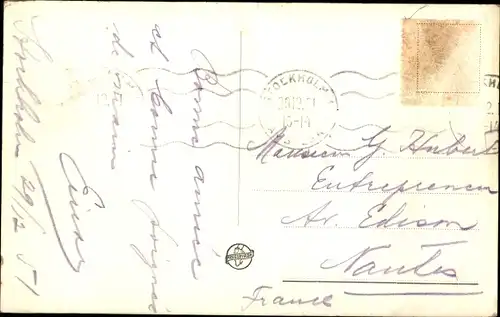 Stockholm 29/12 51
Bonne année
et bonne
de
STOCKHOLM 1
29.12.51
Monsieur G. Hubert
Entrepreneur
Av. Edison
Nantes
France